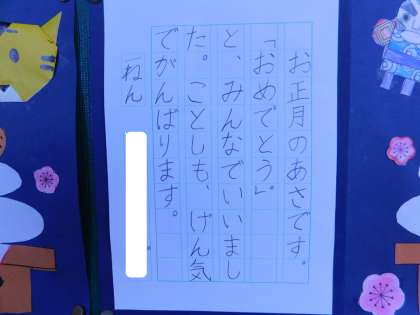 お正月のあさです。
「おめでとう」
と、みんなでいいまし
た。ことしも、げん気
でがんばります。
一ねん